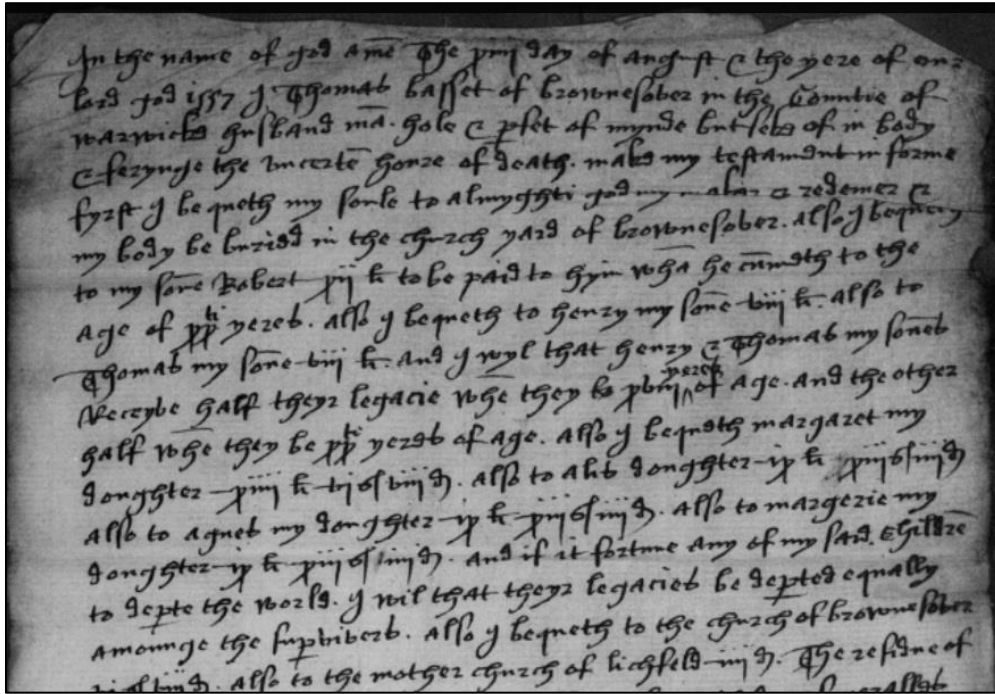 In the name of god amē The xiiii day of august & the yere of our
lord god 1557 I Thomas basset of brownesover in the Countie of
warwicke husband mā. hole & pfet of mynde but seke of in body
& ferynge the uncertē houre of death. make my testament in forme
fyrst I be queth my soule to almyghti god my maker & redemer &
my body be buried in the church yard of brownesover. also I bequeth
to my sōne Robert xii li to be paid to hym whā he cūmeth to the
age of xxti yeres. also I bequeth to henry my sōne viii li. also to
Thomas my sōne viii li. and I wyl that henry & Thomas my sōnes
Receyve half theyr legacie whē they be xviii yeres of age. and the other
half whē they be xxti yeres of age. also I bequeth margaret my
doughter xiiii li vi s viii d. also to alis doughter ix li xiii s iiii d
also to agnes my doughter ix li xiii s iiii d. also to margerie my
doughter ix li xiii s iiii d. And if it fortune any of my said childrē
to depte the world. I wil that theyr legacies be depted equally
amounge the survivers. also I bequeth to the church of brownesover
also to the mother church of lichfeld iiii d. The residue of